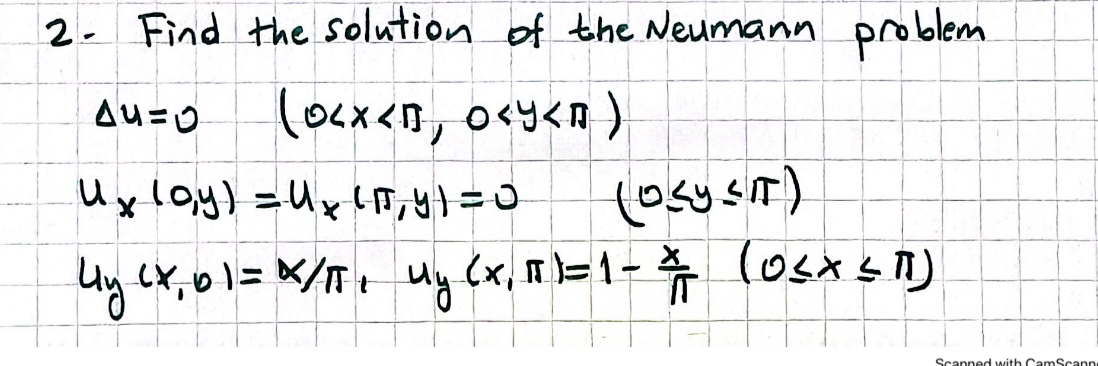 2- Find the solution of the Neumann problem
Δu=0 (0<x<π, 0<y<π)
u_x (0,y) = u_x (π,y) = 0 (0≤y≤π)
u_y (x,0) = x/π, u_y (x,π) = 1 - x/π (0≤x≤π)
Scanned with CamScann